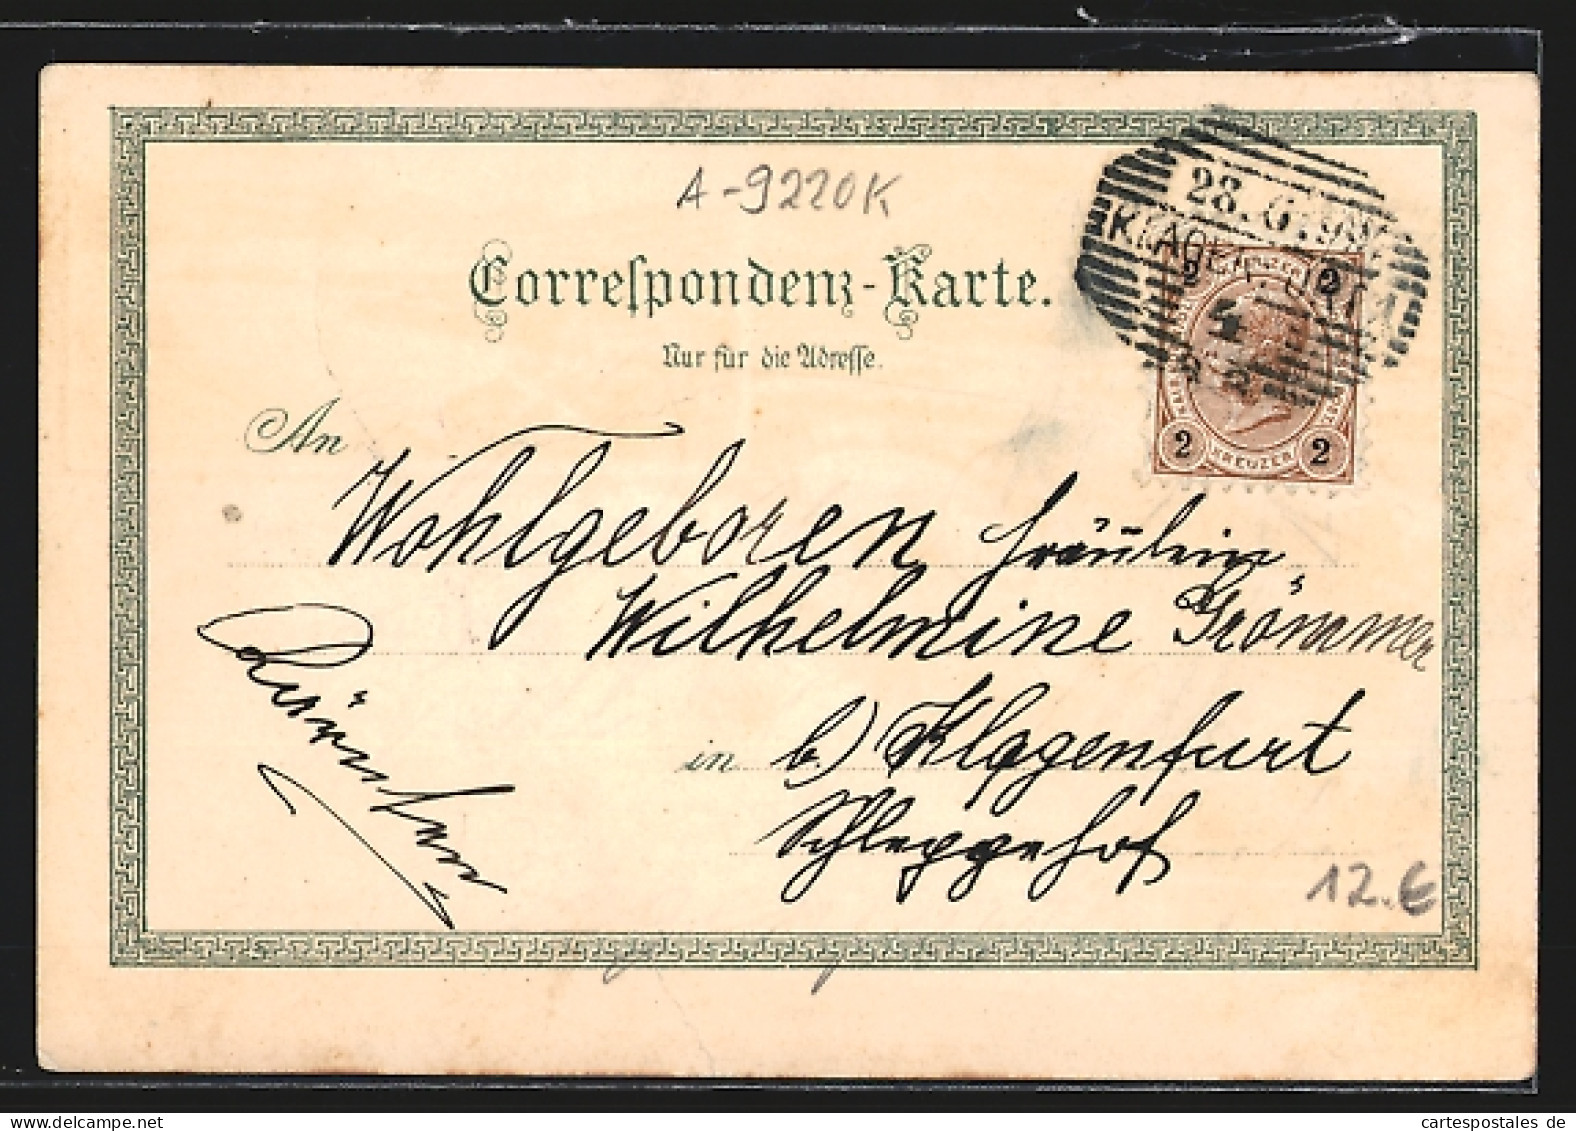 A-9220K
Correspondenz-Karte.
Nur für die Adresse.
28. 6. 98
KLAGENFURT
4
2 2
2 KREUZER 2
An Wohlgeboren Fräulein
Wilhelmine Grömmer
in b/ Klagenfurt
Schleppehof
Kärnten
12.€
cartespostales de